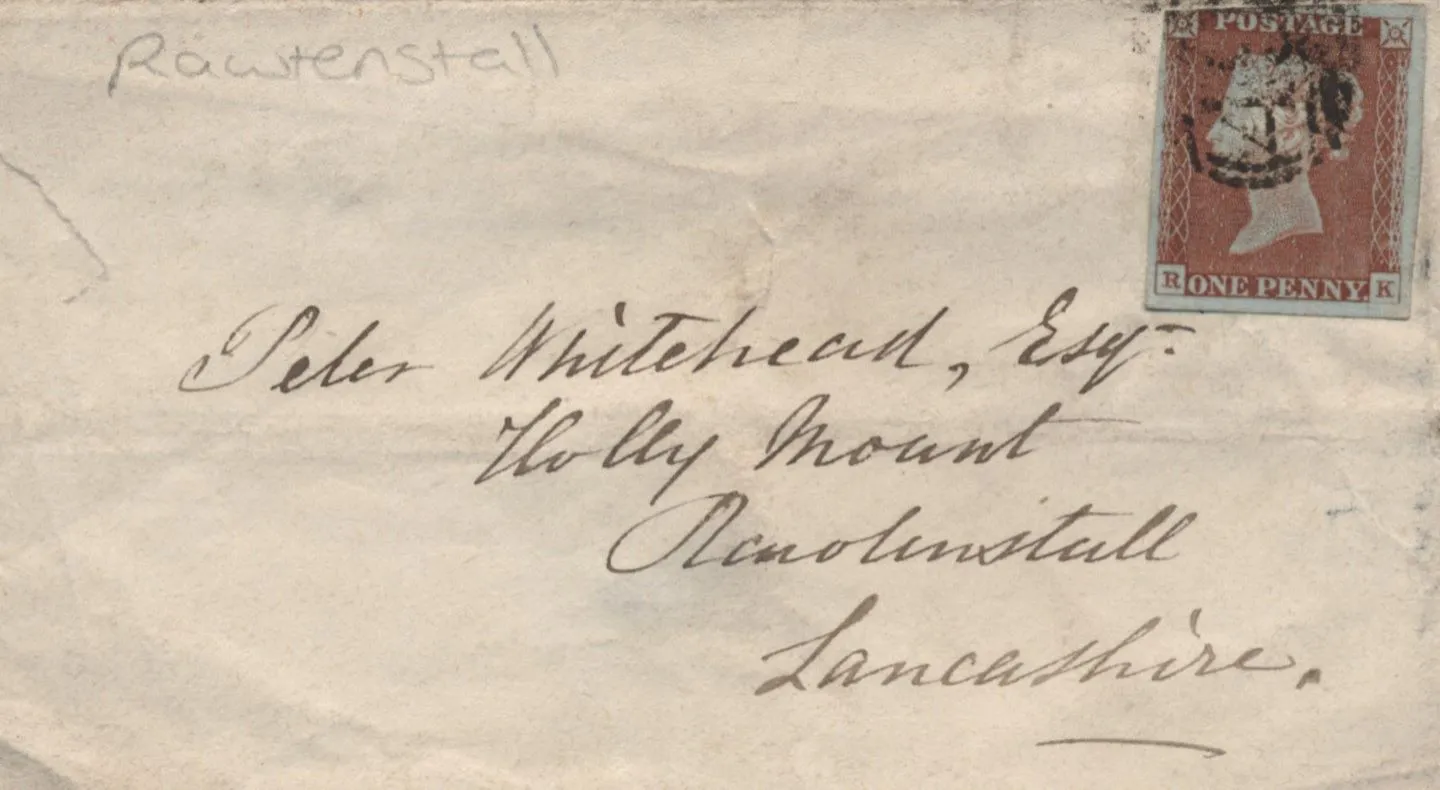 Rawtenstall
POSTAGE
R ONE PENNY. K
Peter Whitehead, Esqr.
Holly Mount
Rawtenstall
Lancashire.